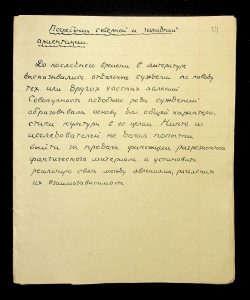 Погребения северной и западной
ориентации.
34
До последнего времени в литературе
высказывались отдельные суждения по поводу
тех или других частных явлений
Совокупность подобного рода суждений
образовывала основу для общей характери-
стики культуры в ее целом. Никто из
исследователей не делал попытки
выйти за пределы фиксации разрозненного
фактического материала и установить
реальную связь между явлениями, раскрыть
их взаимозависимость